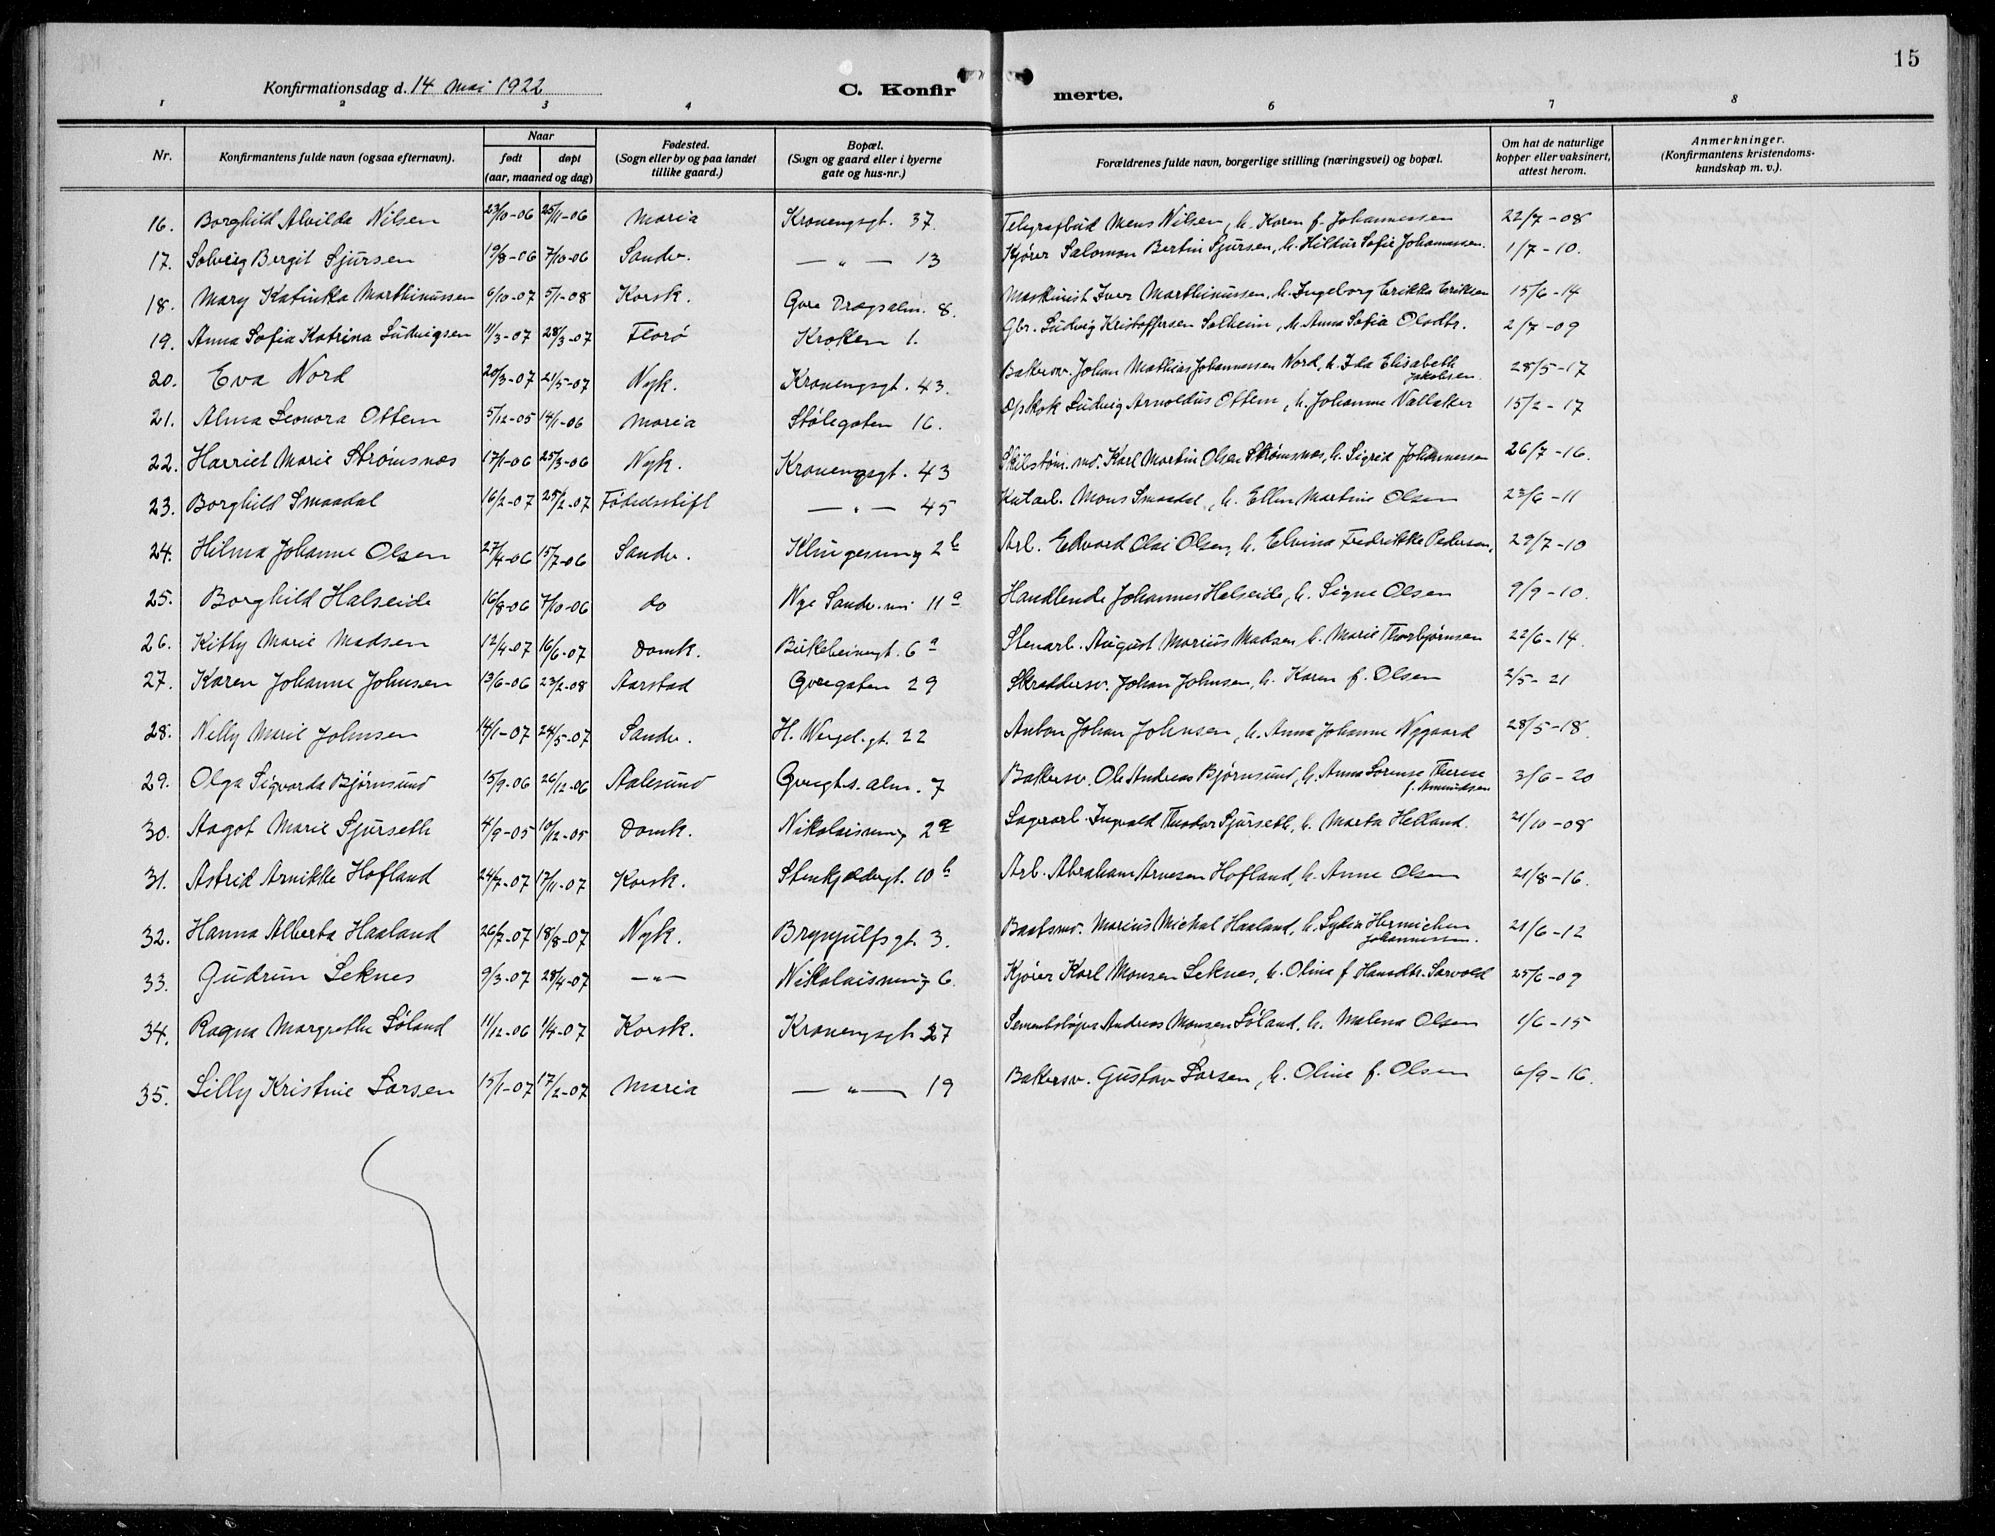 15
Konfirmationsdag d. 14 mai 1922
C. Konfir merte.
1 2 3 4 6 7 8
Nr.
Konfirmantens fulde navn (ogsaa efternavn).
Naar
født døpt
(aar, maaned og dag)
Fødested.
(Sogn eller by og paa landet
tillike gaard.)
Bopæl.
(Sogn og gaard eller i byerne
gate og hus-nr.)
Forældrenes fulde navn, borgerlige stilling (næringsvei) og bopæl.
Om hat de naturlige
kopper eller vaksinert,
attest herom.
Anmerkninger.
(Konfirmantens kristendoms-
kundskap m. v.).
16. Borghild Alvilde Nilsen 23/10-06 25/11-06 Maria Kronengsgt. 37. Telegrafbud Mens Nilsen, h. Karen f. Johannessen 22/7-08
17. Solveig Bergit Sjursen 19/8-06 7/10-06 Sandv. — " — 13 Kjører Salomon Bertin Sjursen, h. Hildur Sofie Johannessen. 1/7-10.
18. Mary Katinka Marthinussen 6/10-07 5/1-08 Korsk. Øvre Dragsalm. 8. Maskinist Iver Marthinussen, h. Ingeborg Erikka Eriksen 15/6-14
19. Anna Sofia Katrina Ludvigsen 11/3-07 28/3-07 Florø Kroken 1. Gbr. Ludvig Kristoffersen Solheim, h. Anna Sofia Olsdtr. 2/7-09
20. Eva Nord 20/3-07 21/5-07 Nyk. Kronengsgt. 43. Bakersv. Johan Mathias Johannessen Nord, h. Ida Elisabeth
Jakobsen. 28/5-17
21. Alma Leonora Ottem 5/12-05 14/1-06 Maria Stølegaten 16. Dpskok Ludvig Arnoldus Ottem, h. Johanne Vallaker 15/2-17
22. Harriet Marie Strømsnes 17/1-06 25/3-06 Nyk. Kronengsgt. 43 Skibstøm. md. Karl Martin Olsen Strømsnes, h. Sigrid Johannessen 26/7-16.
23. Borghild Smaadal 16/2-07 25/2-07 Fødselsstift — " — 45 Mons Smaadal, h. Ellen Martine Olsen 23/6-11
24. Hilma Johanne Olsen 27/4-06 15/7-06 Sandv. Klingesmug 2b Arb. Edvard Olai Olsen, h. Elvina Fredrikke Pedersen, 29/7-10
25. Borghild Halseide 16/8-06 7/10-06 do Nye Sandv. vei 11a Handlende Johannes Halseide, h. Signe Olsen 9/9-10.
26. Kitty Marie Madsen 12/4-07 16/6-07 Domk. Birkebeinergt. 6a Stenarb. August Marius Madsen, h. Marie Thorbjørnsen 22/6-14.
27. Karen Johanne Johnsen 13/6-06 23/2-08 Aarstad Øvregaten 29 Skreddersv. Johan Johnsen, h. Karen f. Olsen 2/5-21
28. Nelly Marie Johnsen 14/1-07 24/5-07 Sandv. H. Wergel. gt. 22 Anton Johan Johnsen, h. Anna Johanne Nygaard 28/5-18.
29. Olga Sigvarda Bjørnsund 15/9-06 26/12-06 Aalesund Øvregts. alm. 7 Bakersv. Ole Andreas Bjørnsund, h. Anna Lorense Therese
f. Amundsen 3/6-20
30. Aagot Marie Sjurseth 4/9-05 10/12-05 Domk. Nikolaismug 2a Lagerarb. Ingvald Theodor Sjurseth, h. Marta Helland. 21/10-08
31. Astrid Arnikke Hofland 24/7-07 17/11-07 Korsk. Stenkjeldergt. 10b Arb. Abraham Arnesen Hofland, h. Anne Olsen 21/8-16.
32. Hanna Alberta Haaland 26/7-07 18/8-07 Nyk. Brynjulfsgt. 3. Baatsmd. Marius Mickal Haaland, h. Lydia Hermichen
Johannessen. 21/6-12
33. Gudrun Seknes 9/3-07 28/4-07 — " — Nikolaismug 6. Kjører Karl Monsen Seknes, h. Olina f. Hansdtr. Sarvold 25/6-09
34. Ragna Margrethe Løland 11/12-06 1/4-07 Korsk. Kronengsgt 27 Sementstøper Andreas Monsen Løland, h. Malena Olsen 1/6-15
35. Lilly Kristine Larsen 15/1-07 17/2-07 Maria — " — 19 Bakersv. Gustav Larsen, h. Oline f. Olsen 6/9-16.